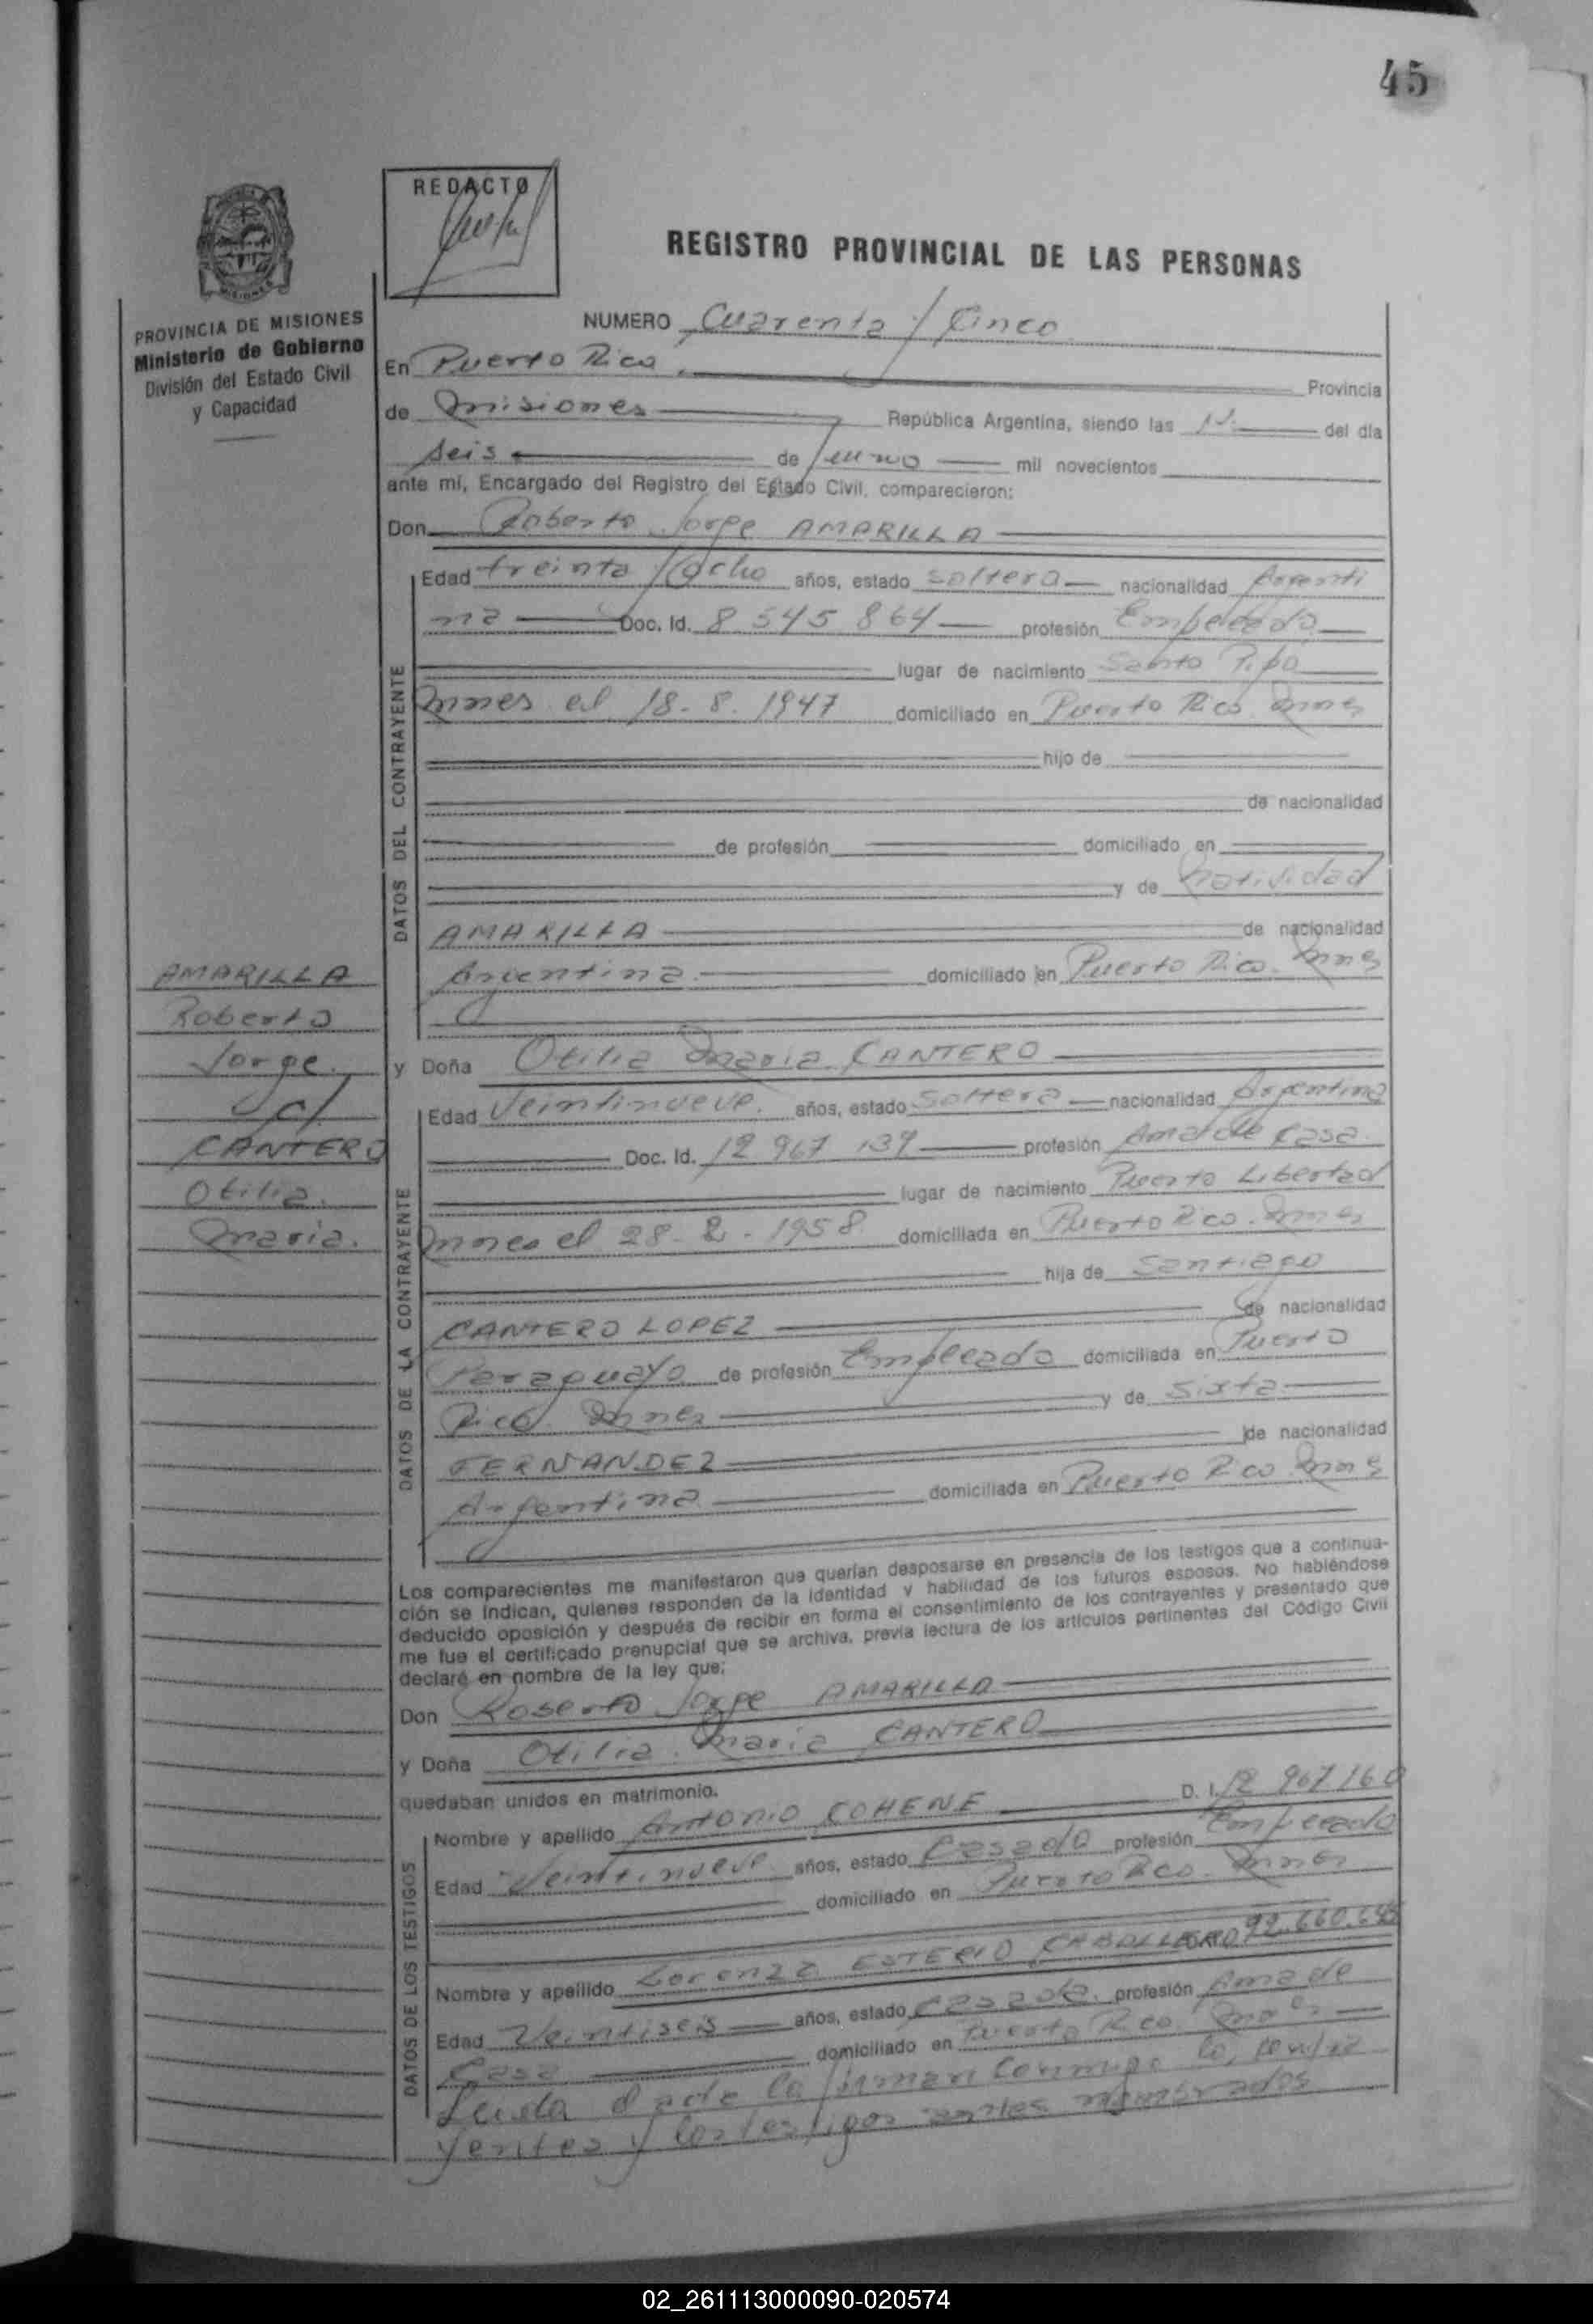 45
REDACTO
REGISTRO PROVINCIAL DE LAS PERSONAS
PROVINCIA DE MISIONES
Ministerio de Gobierno
División del Estado Civil
y Capacidad
NUMERO Cuarenta y Cinco
En Puerto Rico, Provincia
de Misiones República Argentina, siendo las del día
seis de Junio mil novecientos
ante mí, Encargado del Registro del Estado Civil, comparecieron:
Don Roberto Jorge AMARILLA
DATOS DEL CONTRAYENTE
Edad treinta y Ocho años, estado soltero nacionalidad Argenti
na Doc. Id. 8 545 864 profesión Empleado
lugar de nacimiento Santo Pipó
Mnes el 18-8-1947 domiciliado en Puerto Rico Mnes
hijo de
de nacionalidad
de profesión domiciliado en
y de Natividad
AMARILLA de nacionalidad
Argentina domiciliado en Puerto Rico. Mnes
AMARILLA
Roberto
Jorge
c/
CANTERO
Otilia
Maria.
y Doña Otilia Maria CANTERO
DATOS DE LA CONTRAYENTE
Edad Veintinueve años, estado Soltera nacionalidad Argentina
Doc. Id. 12 967 139 profesión Ama de Casa
lugar de nacimiento Puerto Libertad
Mnes el 28-2-1958 domiciliada en Puerto Rico. Mnes
hija de Santiago
CANTERO LOPEZ de nacionalidad
Paraguayo de profesión Empleado domiciliada en Puerto
Rico Mnes y de Sixta
FERNANDEZ de nacionalidad
Argentina domiciliada en Puerto Rico Mnes
Los comparecientes me manifestaron que querían desposarse en presencia de los testigos que a continua-
ción se indican, quienes responden de la identidad y habilidad de los futuros esposos. No habiéndose
deducido oposición y después de recibir en forma el consentimiento de los contrayentes y presentado que
me fue el certificado prenupcial que se archiva, previa lectura de los artículos pertinentes del Código Civil
declaré en nombre de la ley que:
Don Roberto Jorge AMARILLA
y Doña Otilia Maria CANTERO
quedaban unidos en matrimonio.
DATOS DE LOS TESTIGOS
Nombre y apellido Antonio COHENE D. I. 12 967 160
Edad Veintinueve años, estado Casado profesión Empleado
domiciliado en Puerto Rico. Mnes
Nombre y apellido Lorenza ESTERIO CABALLERO 92.660.645
Edad Veintiseis años, estado Casada profesión Ama de
Casa domiciliado en Puerto Rico Mnes
Leida el acta la firman conmigo los contra
yentes y los testigos antes nombrados
02_261113000090-020574